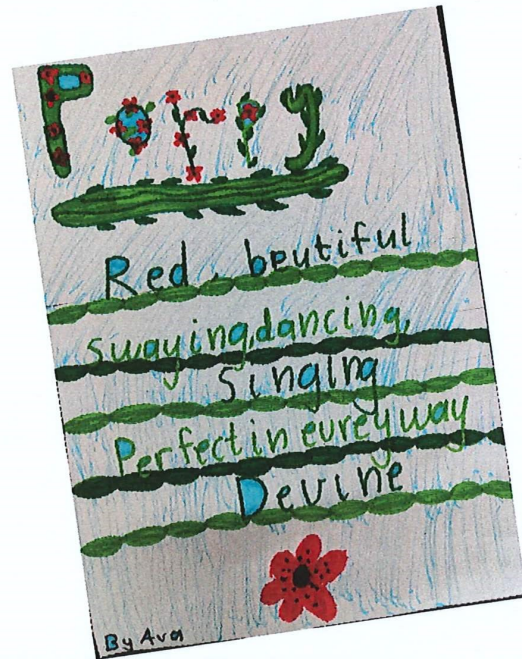 Poppy
Red, beutiful
swaying,dancing,
Singing
Perfect in eurey way
Devine
By Ava